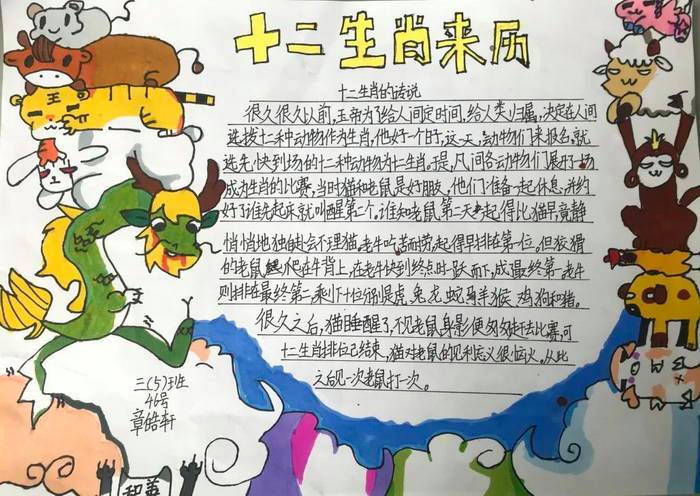 十二生肖来历
十二生肖的传说
很久很久以前,玉帝为了给人间定时间,给人类归属,决定在人间
选拔十二种动物作为生肖,他好一个时,这一天,动物们来报名,就
选先,快到场的十二种动物为十二生肖。于是,凡间各动物们展开了一场
成为生肖的比赛,当时猫和老鼠是好朋友,他们准备一起休息,并约
好了谁先起来就叫醒第二个。谁知老鼠第二天起得比猫早,竟静
悄悄地独自去会不理猫。老牛吃苦而劳,起得早排在第一位,但狡猾
的老鼠爬在牛背上,在老牛快到终点时跃而下,成最终第一,老牛
则排在最终第二,剩下十位分别是虎、兔、龙、蛇、马、羊、猴、鸡、狗和猪。
很久之后,猫睡醒了,不见老鼠身影便匆匆赶去比赛,可
十二生肖排位已结束,猫对老鼠的见利忘义很恼火。从此
之后见一次老鼠打一次。
三(5)班
46号
章皓轩
王
和善